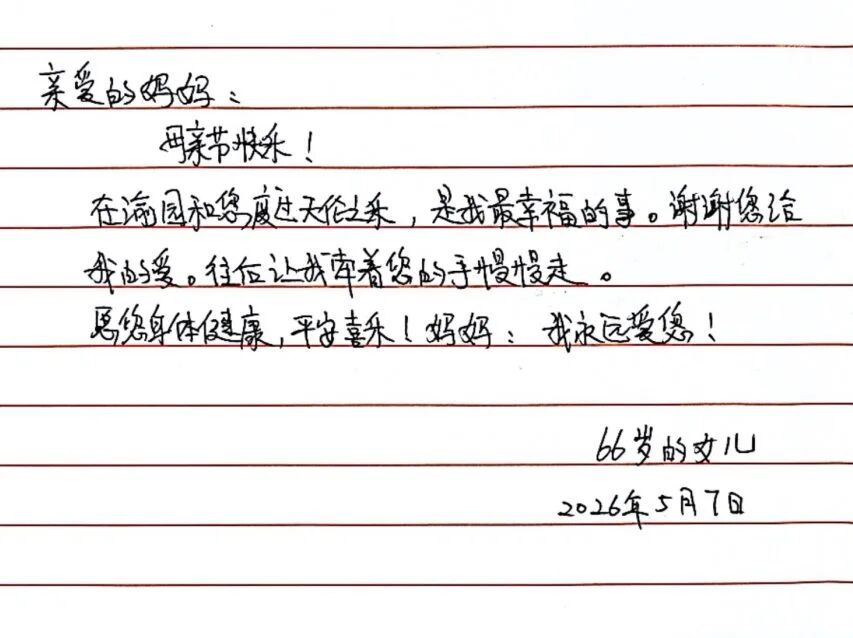 亲爱的妈妈：
母亲节快乐！
在渝园和您度过天伦之乐，是我最幸福的事。谢谢您给
我的爱。往后让我牵着您的手慢慢走。
愿您身体健康，平安喜乐！妈妈：我永远爱您！
66岁的女儿
2026年5月7日